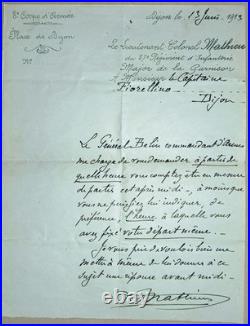 8e Corps d'Armée
Place de Dijon
No
Dijon, le 13 Juin 1913
Le Lieutenant Colonel Mathieu
du 27e Régiment d'Infanterie
Major de la Garnison
à Monsieur le Capitaine
Fiorellino
Dijon
Le Général Belin commandant d'armes
me charge de vous demander à partir de
quelle heure vous comptez être en mesure
de partir cet après midi, à moins que
vous ne puissiez lui indiquer, de
préférence, l'heure à laquelle vous
avez fixé votre départ même.
Je vous prie de vouloir bien me
mettre à même de lui donner à ce
sujet une réponse avant midi.
Mathieu